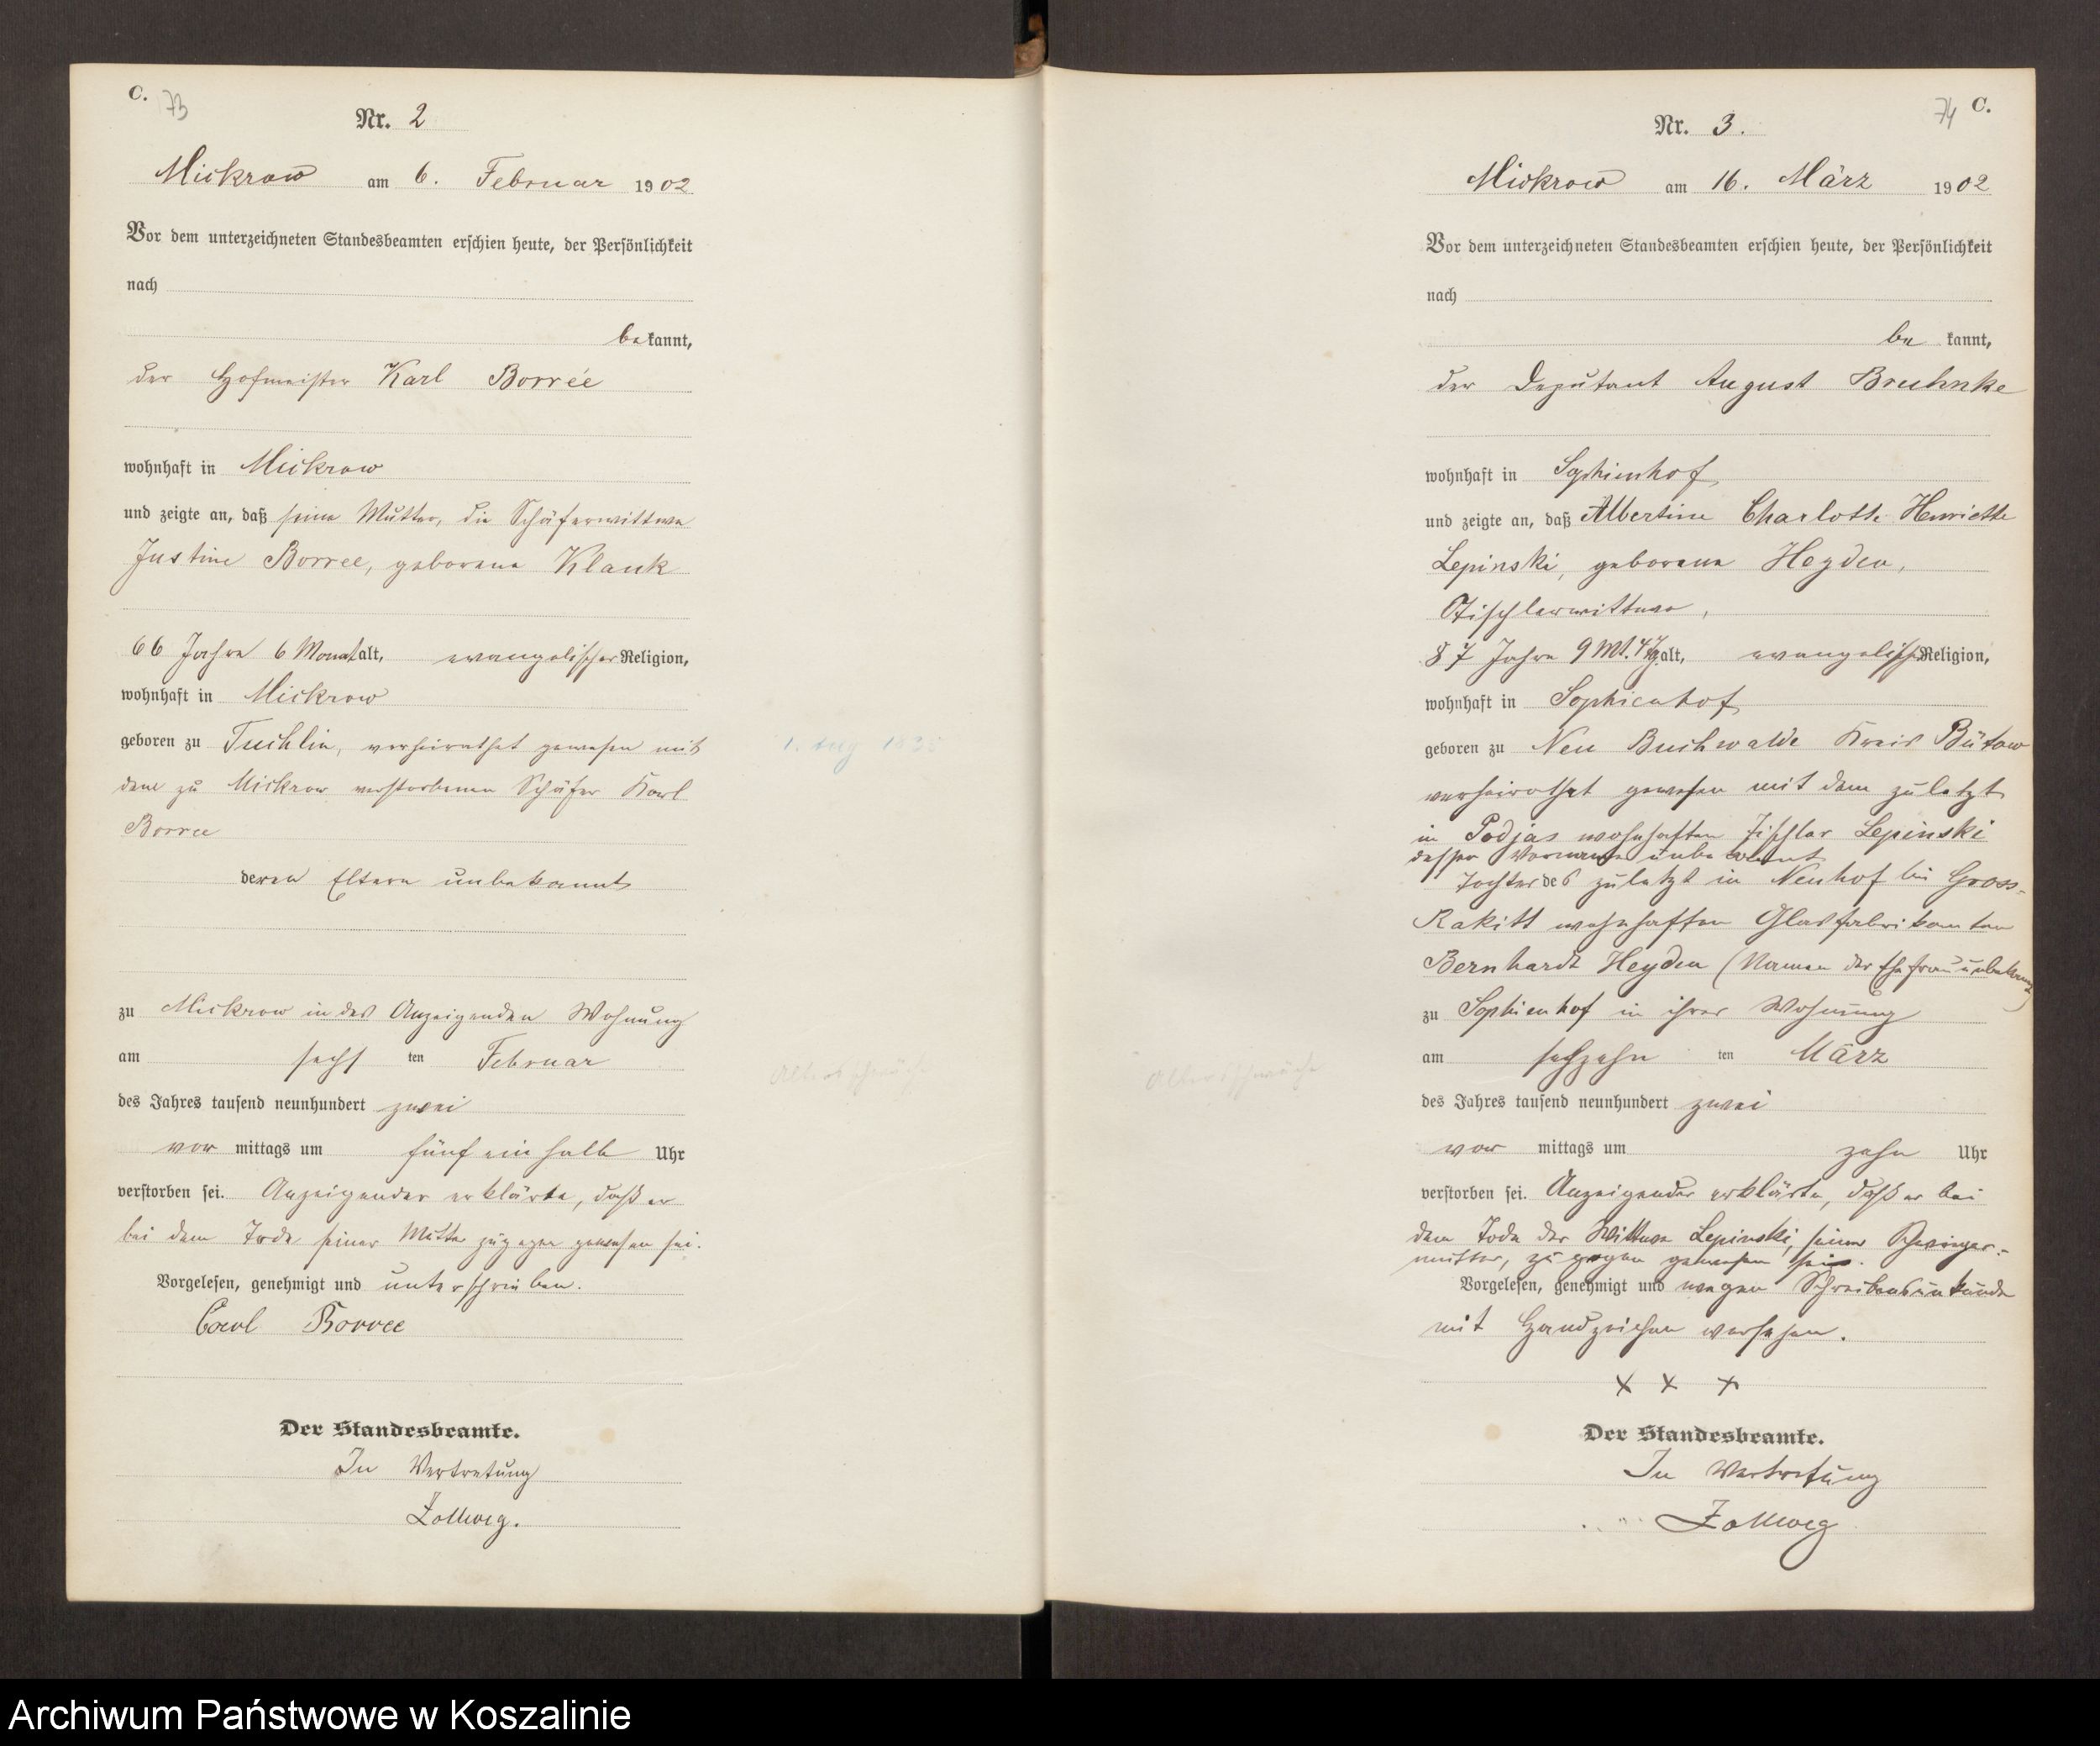 C. 73
Nr. 2
Mickrow am 6. Februar 1902
Vor dem unterzeichneten Standesbeamten erschien heute, der Persönlichkeit
nach
bekannt,
der Hofmeister Karl Borrée
wohnhaft in Mickrow
und zeigte an, daß seine Mutter, die Schäferwittwe
Justine Borree, geborene Klauk
66 Jahre 6 Monat alt, evangelischer Religion,
wohnhaft in Mickrow
geboren zu Tuchlin, verheirathet gewesen mit
dem zu Mickrow verstorbenen Schäfer Karl
Borree
1. Aug 1835
deren Eltern unbekannt
zu Mickrow in des Anzeigenden Wohnung
am sechs ten Februar
Altersschwäche
des Jahres tausend neunhundert zwei
vor mittags um fünf ein halb Uhr
verstorben sei. Anzeigender erklärte, daß er
bei dem Tode seiner Mutter zugegen gewesen sei.
Vorgelesen, genehmigt und unterschrieben.
Carl Borree
Der Standesbeamte.
In Vertretung
Zollweg.
74 C.
Nr. 3.
Mickrow am 16. März 1902
Vor dem unterzeichneten Standesbeamten erschien heute, der Persönlichkeit
nach
be kannt,
der Deputant August Bruhnke
wohnhaft in Sophienhof
und zeigte an, daß Albertine Charlotte Henriette
Lepinski, geborene Heyden,
Tischlerwittwe,
87 Jahre 9 Mt. 4 Tg alt, evangelisch Religion,
wohnhaft in Sophienhof
geboren zu Neu Buchwalde Kreis Bütow
verheirathet gewesen mit dem zuletzt
in Podjas wohnhaften Tischler Lepinski
dessen Vorname unbekannt
Tochter des zuletzt in Neuhof bei Gross-
Rakitt wohnhaften Glasfabrikanten
Bernhardt Heyden (Namen der Ehefrau unbekannt)
zu Sophienhof in ihrer Wohnung
am sechzehn ten März
Altersschwäche
des Jahres tausend neunhundert zwei
vor mittags um zehn Uhr
verstorben sei. Anzeigender erklärte, daß er bei
dem Tode der Wittwe Lepinski, seiner Schwieger-
mutter, zugegen gewesen sei.
Vorgelesen, genehmigt und wegen Schreibensunkunde
mit Handzeichen versehen.
x x x
Der Standesbeamte.
In Vertretung
Zollweg
Archiwum Państwowe w Koszalinie